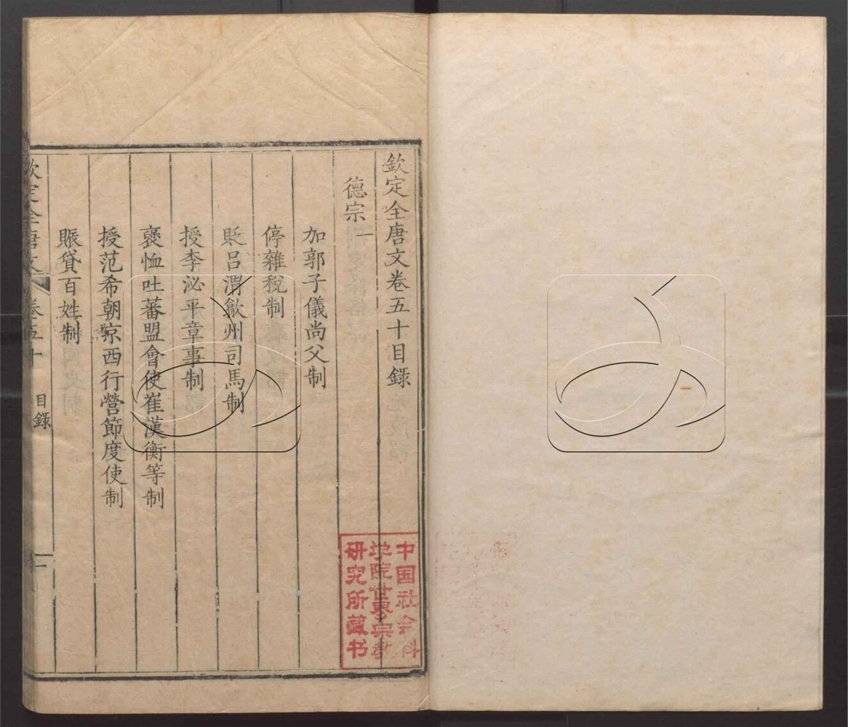 欽定全唐文卷五十目錄
德宗一
加郭子儀尚父制
停雜稅制
貶呂渭歙州司馬制
授李泌平章事制
褒恤吐蕃盟會使崔漢衡等制
授范希朝京西行營節度使制
賑貸百姓制
欽定全唐文 卷五十 目錄 一
中国社会科
学院世界宗教
研究所藏书